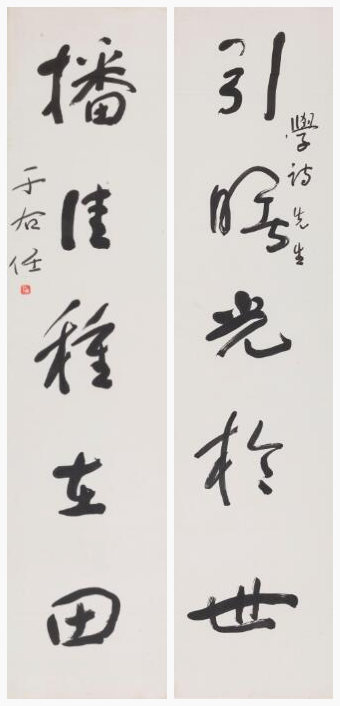 引曙光於世
學詩先生
播佳種在田
于右任